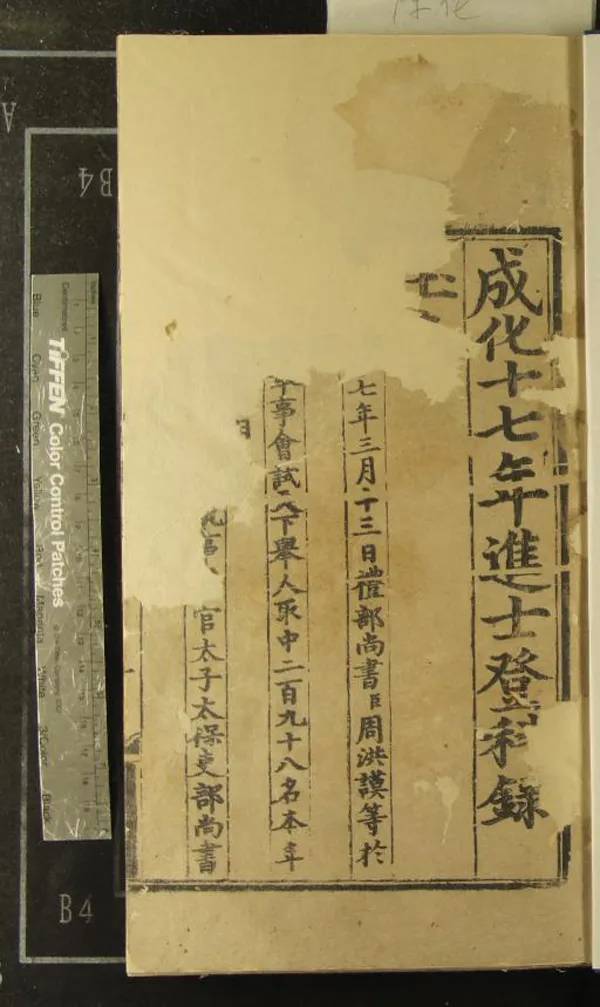 成化十七年進士登科錄
七年三月十三日禮部尚書臣周洪謨等於
午事會試天下舉人取中二百九十八名本年
官太子太保吏部尚書
B4
B4
A
TIFFEN Color Control Patches
Centimetres
Inches
Blue
Cyan
Green
Yellow
Red
Magenta
White
3/Color
Black